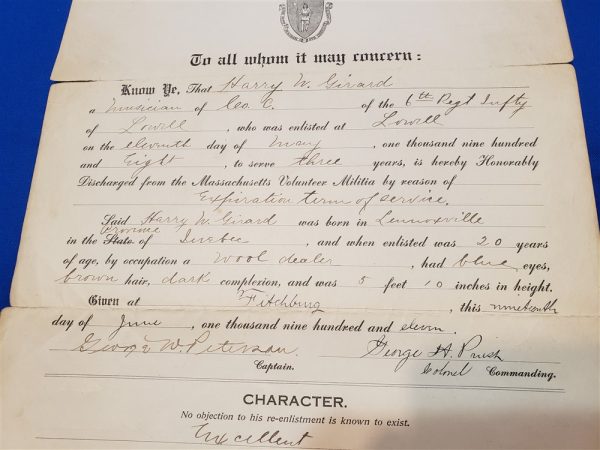 To all whom it may concern:
Know Ye, That Harry W. Girard
a Musician of Co. C. of the 6th Regt Infty
of Lowell, who was enlisted at Lowell
on the eleventh day of May, one thousand nine hundred
and Eight, to serve three years, is hereby Honorably
Discharged from the Massachusetts Volunteer Militia by reason of
Expiration term of service.
Said Harry W. Girard was born in Lennoxville
Province
in the State of Quebec, and when enlisted was 20 years
of age, by occupation a Wool dealer, had blue eyes,
brown hair, dark complexion, and was 5 feet 10 inches in height.
Given at Fitchburg, this nineteenth
day of June, one thousand nine hundred and eleven.
George W. Peterson. George H.
Captain. Colonel Commanding.
CHARACTER.
No objection to his re-enlistment is known to exist.
Excellent